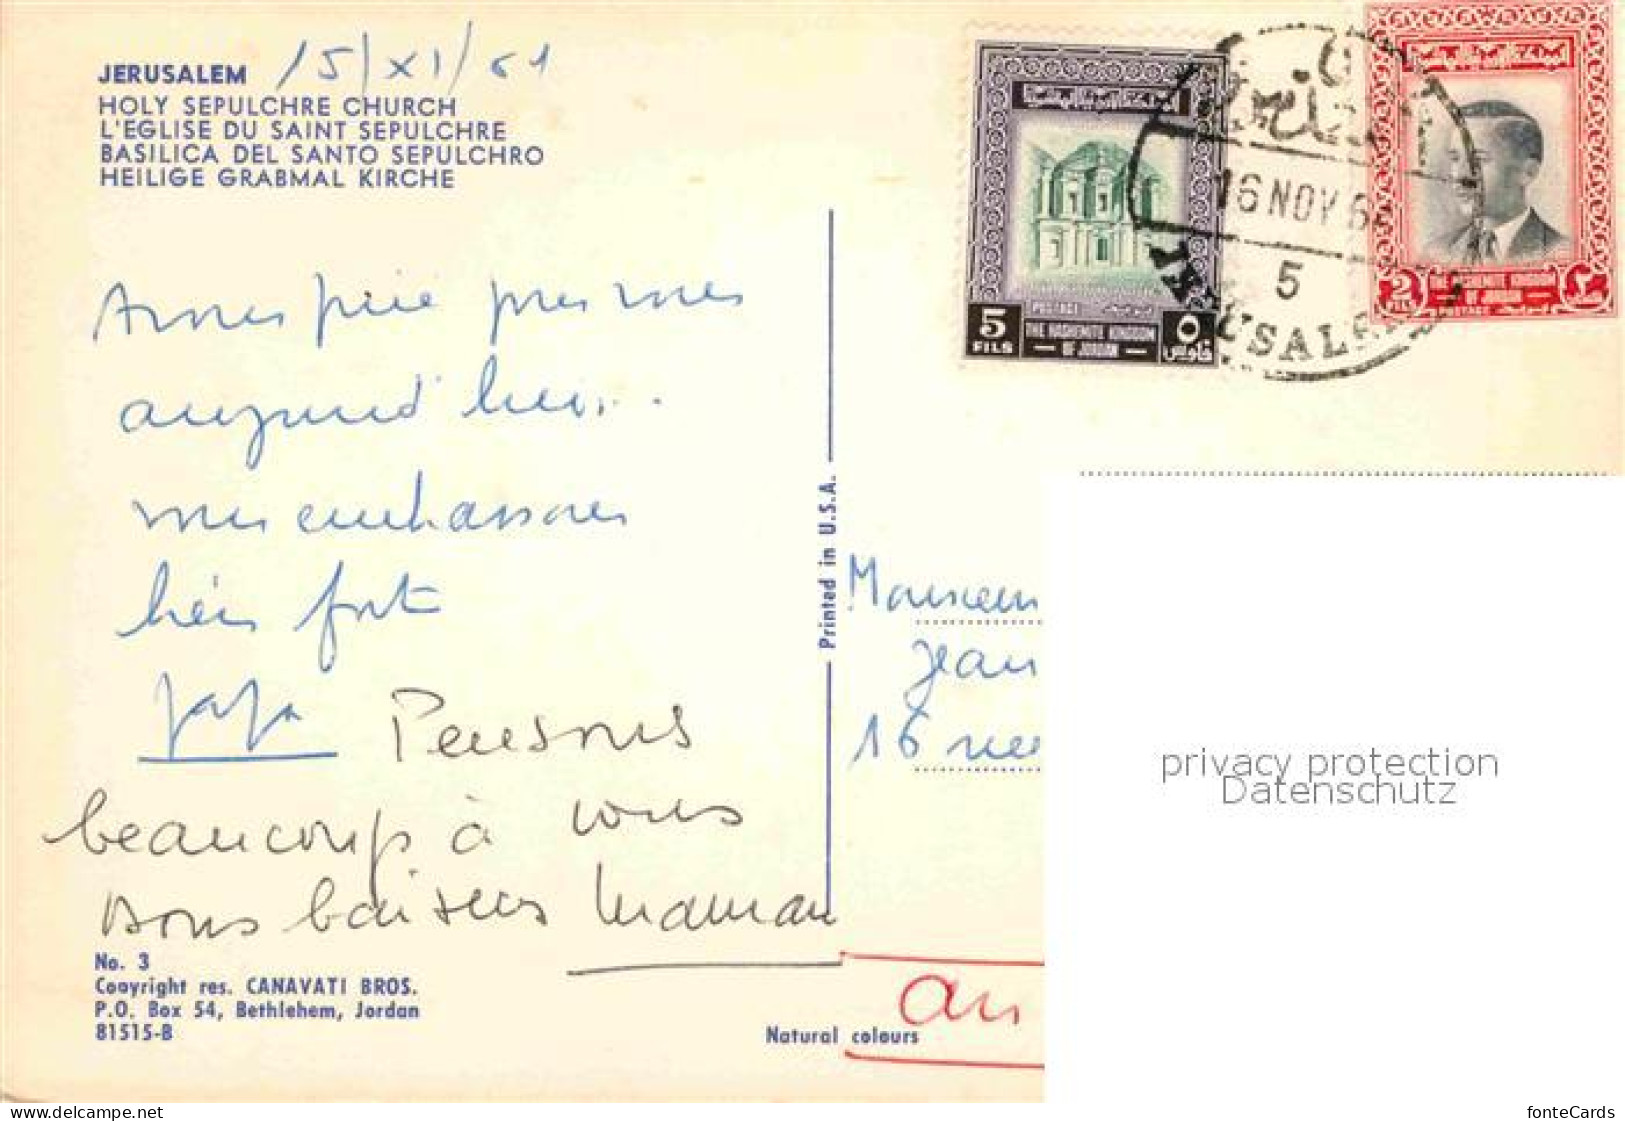 JERUSALEM 15/XI/61
HOLY SEPULCHRE CHURCH
L'EGLISE DU SAINT SEPULCHRE
BASILICA DEL SANTO SEPULCHRO
HEILIGE GRABMAL KIRCHE
Avons prié pour vous
aujourd'hui..
vous embrassons
bien fort
Papa
Pensons
beaucoup à vous
Bons baisers Maman
No. 3
Copyright res. CANAVATI BROS.
P.O. Box 54, Bethlehem, Jordan
81515-B
Natural colours
Printed in U.S.A.
5
FILS
POSTAGE
THE HASHEMITE KINGDOM
OF JORDAN
٥
فلوس
16 NOV 6
5
JERUSALEM
2
FILS
THE HASHEMITE KINGDOM
OF JORDAN
POSTAGE
٢
Monsieur
Jean
16 rue
privacy protection
Datenschutz
www.delcampe.net
fonteCards